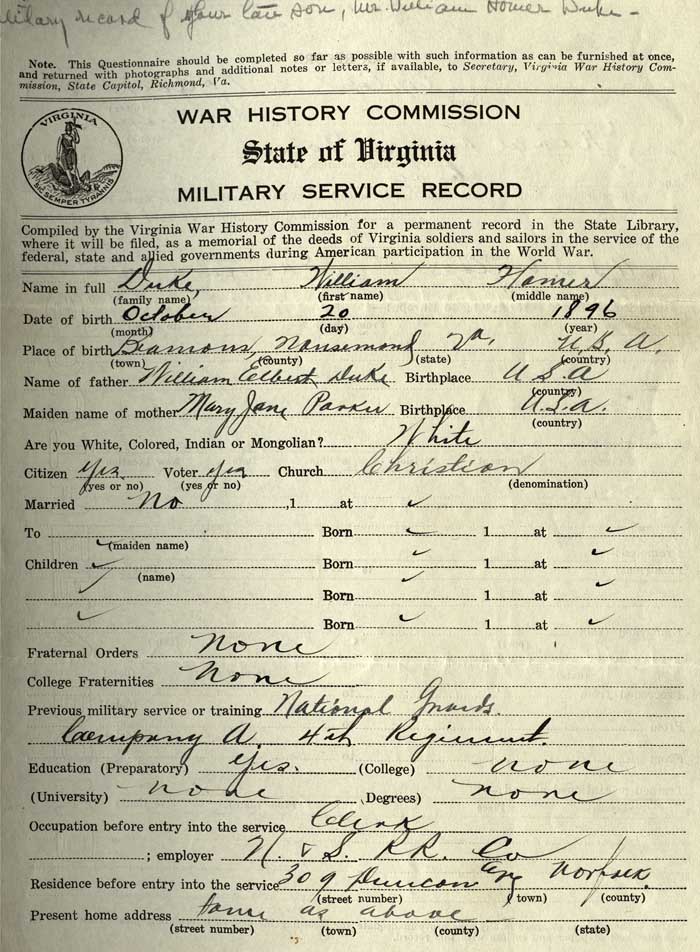 military record of your late son, Mr. William Homer Duke -
Note. This Questionnaire should be completed so far as possible with such information as can be furnished at once,
and returned with photographs and additional notes or letters, if available, to Secretary, Virginia War History Com-
mission, State Capitol, Richmond, Va.
VIRGINIA
SIC SEMPER TYRANNIS
WAR HISTORY COMMISSION
State of Virginia
MILITARY SERVICE RECORD
Compiled by the Virginia War History Commission for a permanent record in the State Library,
where it will be filed, as a memorial of the deeds of Virginia soldiers and sailors in the service of the
federal, state and allied governments during American participation in the World War.
Name in full Duke, William Homer
(family name) (first name) (middle name)
Date of birth October 20 1896
(month) (day) (year)
Place of birth Beamons, Nansemond Va. U. S. A.
(town) (county) (state) (country)
Name of father William Elbert Duke Birthplace U S A
(country)
Maiden name of mother Mary Jane Parker Birthplace U.S.A.
(country)
Are you White, Colored, Indian or Mongolian? White
Citizen Yes Voter Yes Church Christian
(yes or no) (yes or no) (denomination)
Married No ,1 at ✓
To ✓ Born ✓ 1 at ✓
(maiden name)
Children ✓ Born ✓ 1 at ✓
(name)
✓ Born ✓ 1 at ✓
✓ Born ✓ 1 at ✓
Fraternal Orders None
College Fraternities None
Previous military service or training National Guards.
Company A. 4th Regiment.
Education (Preparatory) Yes. (College) none
(University) none (Degrees) none
Occupation before entry into the service Clerk
; employer N. & S. RR. Co
Residence before entry into the service 309 Duncan Ave Norfolk.
(street number) (town) (county)
Present home address same as above
(street number) (town) (county) (state)